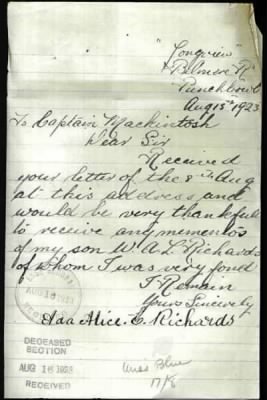 "Longview"
Belmore Rd
Punchbowl
Aug 15th 1923
To Captain Mackintosh
Dear Sir
Received
your letter of the 8th Aug
at this address and
would be very thankful
to receive any mementos
of my son W. A. L. Richards
of whom I was very fond
I Remain
Yours Sincerely
Ada Alice. E. Richards
AUG 16 1923
DECEASED
SECTION
AUG 16 1923
RECEIVED
Miss Blue
17/8